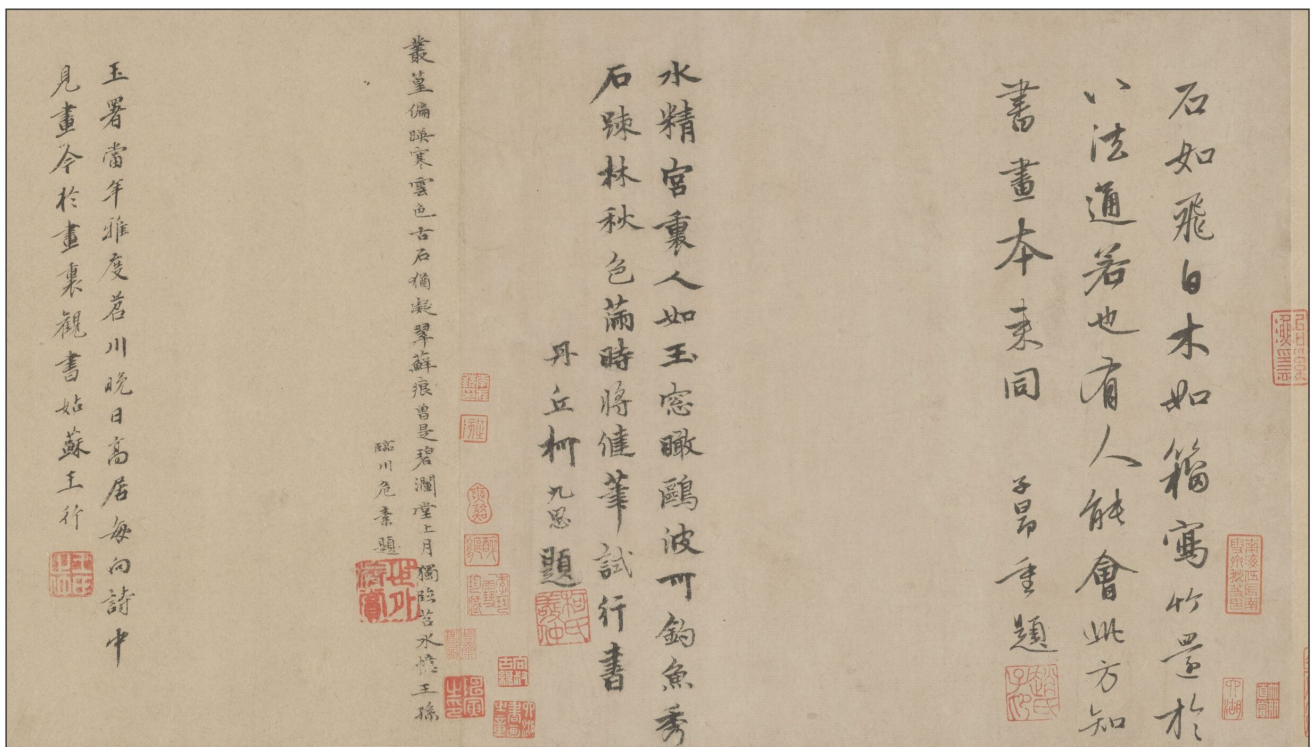 石如飛白木如籀寫竹還於
八法通若也有人能會此方知
書畫本來同 子昂重題
趙氏子昂
水精宮裏人如玉窓瞰鷗波可釣魚秀
石踈林秋色滿時將健筆試行書
丹丘柯九思題
柯氏敬仲
叢篁偏暎寒雲色古石猶凝翠蘚痕曾是碧瀾堂上月獨臨苕水憶王孫
臨川危素題
玉署當年雅度苕川晚日高居每向詩中
見畫今於畫裏觀書姑蘇王行